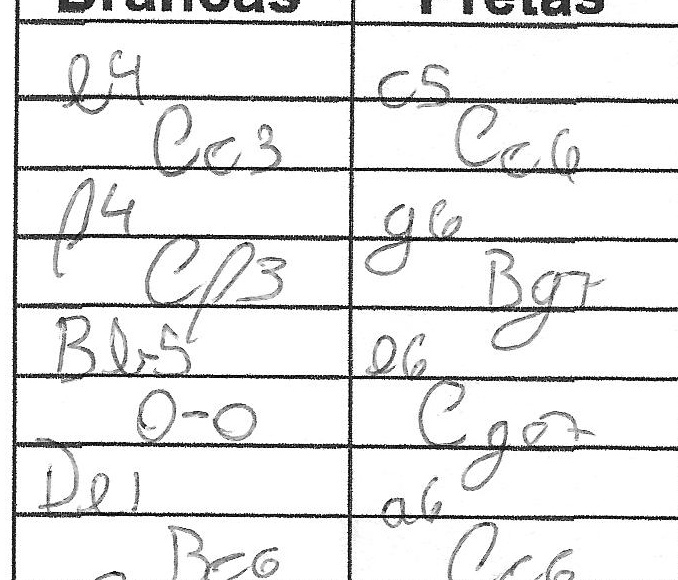 Brancas Pretas
e4 c5
Cc3 Cc6
f4 g6
Cf3 Bg7
Bb5 e6
0-0 Cge7
De1 a6
Bc6 Cc6